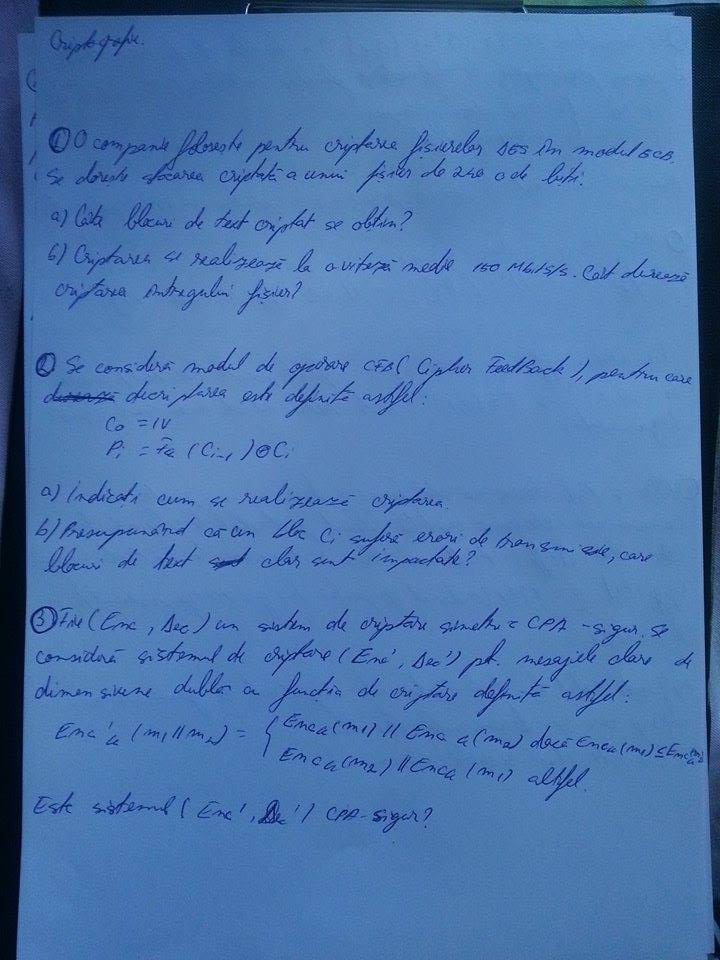 Criptografie.
① O companie folosește pentru criptarea fișierelor DES în modul ECB.
Se dorește stocarea criptată a unui fișier de de biți.
a) Câte blocuri de text criptat se obțin?
b) Criptarea se realizează la o viteză medie 150 Mbits/s. Cât durează
criptarea întregului fișier?
② Se consideră modul de operare CFB (Cipher FeedBack), pentru care
decriptarea este definită astfel:
C0 = IV
Pi = Fk (Ci-1) ⊕ Ci
a) Indicați cum se realizează criptarea.
b) Presupunând că un bloc Ci suferă erori de transmisie, care
blocuri de text clar sunt impactate?
③ Fie (Enc, Dec) un sistem de criptare simetric CPA-sigur. Se
consideră sistemul de criptare (Enc', Dec') pt. mesajele clare de
dimensiune dublă cu funcția de criptare definită astfel:
Enc'k (m1 || m2) = { Enck(m1) || Enck(m2) dacă Enck(m1) ≤ Enck(m2)
Enck(m2) || Enck(m1) altfel.
Este sistemul (Enc', Dec') CPA-sigur?